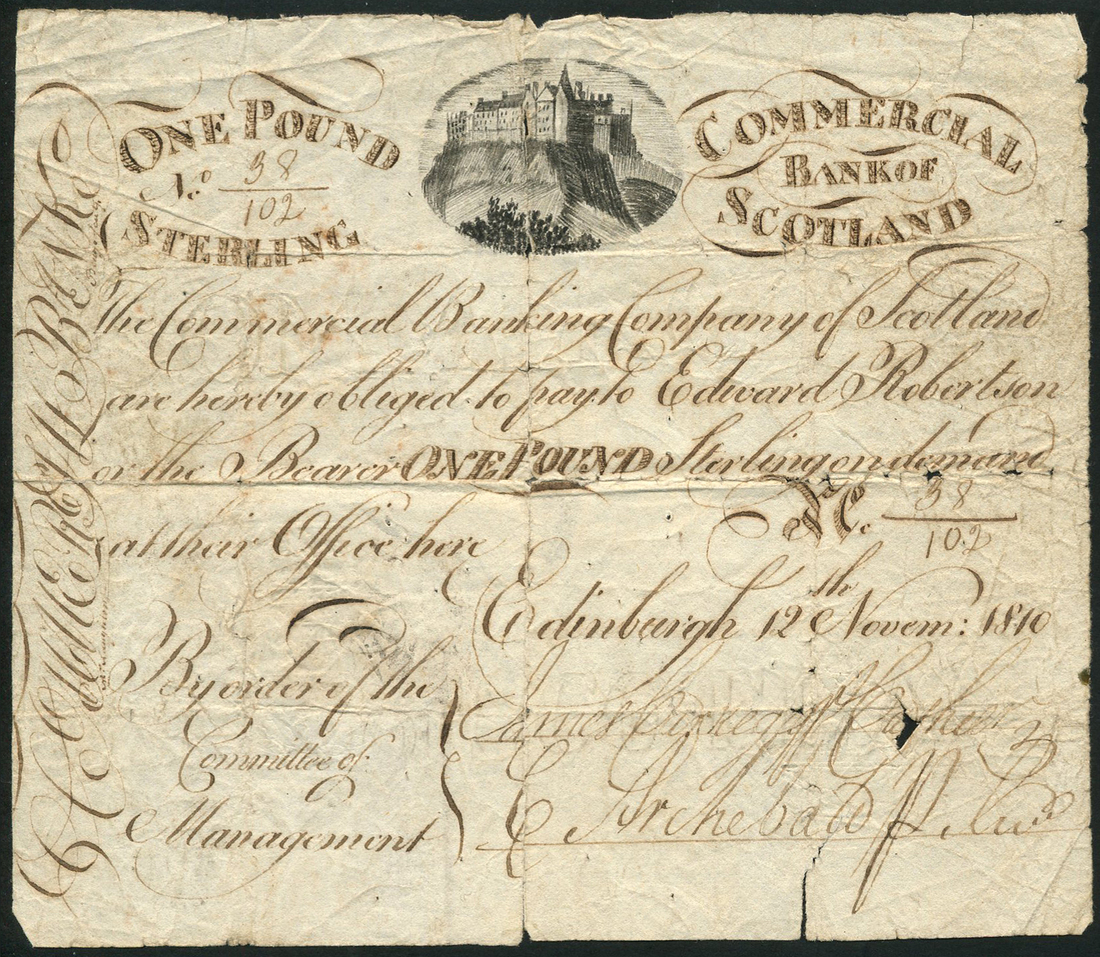 ONE POUND
No. 38
102
STERLING
COMMERCIAL
BANK OF
SCOTLAND
The Commercial Banking Company of Scotland
are hereby obliged to pay to Edward Robertson
or the Bearer ONE POUND Sterling on demand
No. 38
102
at their Office here
Edinburgh 12th Novem: 1810
By order of the
Committee of
Management
Cashier
Archebald